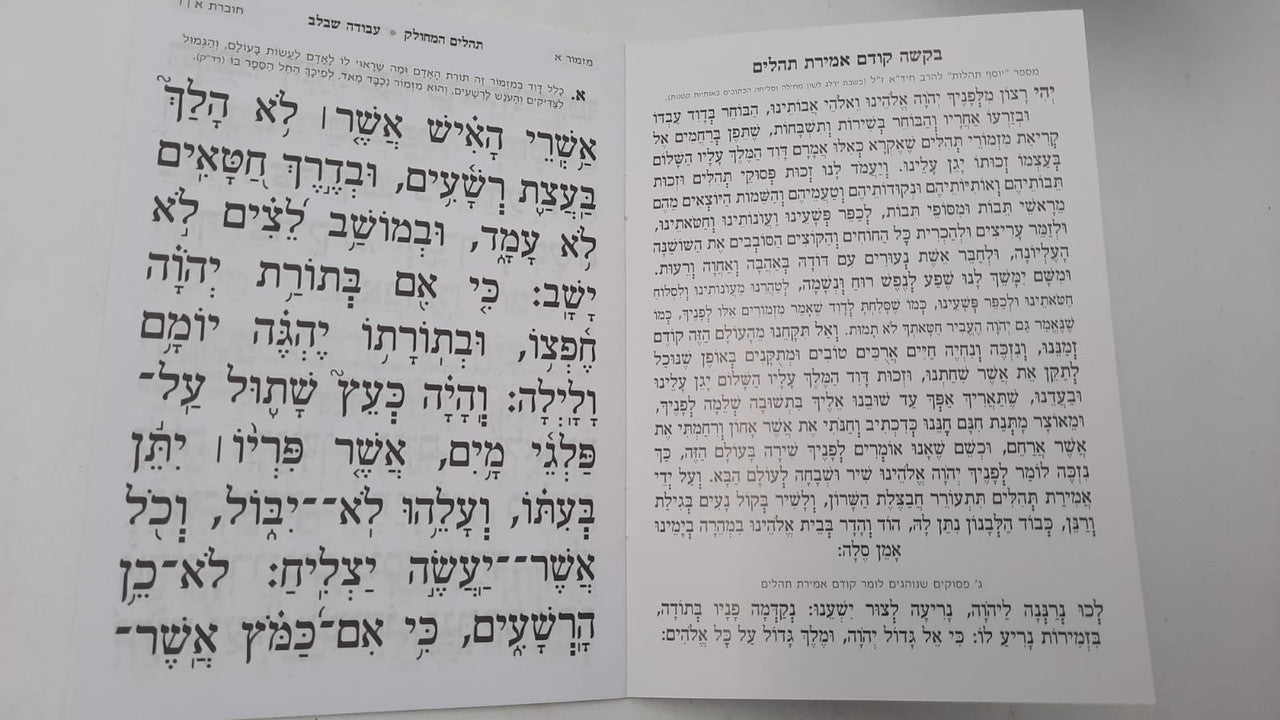 בקשה קודם אמירת תהלים
מספר "יוסף תהלות" להרב חיד"א ז"ל (בשבת ידלג לשון מחילה וסליחה הכתובים באותיות קטנות).
יְהִי רָצוֹן מִלְּפָנֶיךָ יְהֹוָה אֱלֹהֵינוּ וֵאלֹהֵי אֲבוֹתֵינוּ, הַבּוֹחֵר בְּדָוִד עַבְדּוֹ
וּבְזַרְעוֹ אַחֲרָיו וְהַבּוֹחֵר בְּשִׁירוֹת וְתִשְׁבָּחוֹת, שֶׁתֵּפֶן בְּרַחֲמִים אֶל
קְרִיאַת מִזְמוֹרֵי תְהִלִּים שֶׁאֶקְרָא כְּאִלּוּ אֲמָרָם דָּוִד הַמֶּלֶךְ עָלָיו הַשָּׁלוֹם
בְּעַצְמוֹ זְכוּתוֹ יָגֵן עָלֵינוּ. וְיַעֲמֹד לָנוּ זְכוּת פְּסוּקֵי תְהִלִּים וּזְכוּת
תֵּבוֹתֵיהֶם וְאוֹתִיּוֹתֵיהֶם וּנְקוּדוֹתֵיהֶם וְטַעֲמֵיהֶם וְהַשֵּׁמוֹת הַיּוֹצְאִים מֵהֶם
מֵרָאשֵׁי תֵבוֹת וּמִסּוֹפֵי תֵבוֹת, לְכַפֵּר פְּשָׁעֵינוּ וַעֲוֹנוֹתֵינוּ וְחַטֹּאתֵינוּ,
וּלְזַמֵּר עָרִיצִים וּלְהַכְרִית כָּל הַחוֹחִים וְהַקּוֹצִים הַסּוֹבְבִים אֶת הַשּׁוֹשַׁנָּה
הָעֶלְיוֹנָה, וּלְחַבֵּר אֵשֶׁת נְעוּרִים עִם דּוֹדָהּ בְּאַהֲבָה וְאַחֲוָה וְרֵעוּת.
וּמִשָּׁם יִמָּשֶׁךְ לָנוּ שֶׁפַע לְנֶפֶשׁ רוּחַ וּנְשָׁמָה, לְטַהֲרֵנוּ מֵעֲוֹנוֹתֵינוּ וְלִסְלוֹחַ
חַטֹּאתֵינוּ וּלְכַפֵּר פְּשָׁעֵינוּ, כְּמוֹ שֶׁסָּלַחְתָּ לְדָוִד שֶׁאָמַר מִזְמוֹרִים אֵלּוּ לְפָנֶיךָ, כְּמוֹ
שֶׁנֶּאֱמַר גַּם יְהֹוָה הֶעֱבִיר חַטָּאתְךָ לֹא תָמוּת. וְאַל תִּקָּחֵנוּ מֵהָעוֹלָם הַזֶּה קוֹדֶם
זְמַנֵּנוּ, וְנִזְכֶּה וְנִחְיֶה חַיִּים אֲרֻכִּים טוֹבִים וּמְתֻקָּנִים בְּאוֹפֶן שֶׁנּוּכַל
לְתַקֵּן אֵת אֲשֶׁר שִׁחַתְנוּ, וּזְכוּת דָּוִד הַמֶּלֶךְ עָלָיו הַשָּׁלוֹם יָגֵן עָלֵינוּ
וּבַעֲדֵנוּ, שֶׁתַּאֲרִיךְ אַפְּךָ עַד שׁוּבֵנוּ אֵלֶיךָ בִּתְשׁוּבָה שְׁלֵמָה לְפָנֶיךָ,
וּמֵאוֹצַר מַתְּנַת חִנָּם חָנֵּנוּ כְּדִכְתִיב וְחַנֹּתִי אֶת אֲשֶׁר אָחוֹן וְרִחַמְתִּי אֶת
אֲשֶׁר אֲרַחֵם, וּכְשֵׁם שֶׁאָנוּ אוֹמְרִים לְפָנֶיךָ שִׁירָה בָּעוֹלָם הַזֶּה, כָּךְ
נִזְכֶּה לוֹמַר לְפָנֶיךָ יְהֹוָה אֱלֹהֵינוּ שִׁיר וּשְׁבָחָה לָעוֹלָם הַבָּא. וְעַל יְדֵי
אֲמִירַת תְּהִלִּים תִּתְעוֹרֵר חֲבַצֶּלֶת הַשָּׁרוֹן, וְלָשִׁיר בְּקוֹל נָעִים בְּגִילַת
וְרַנֵּן, כְּבוֹד הַלְּבָנוֹן נִתַּן לָהּ, הוֹד וְהָדָר בְּבֵית אֱלֹהֵינוּ בִּמְהֵרָה בְיָמֵינוּ
אָמֵן סֶלָה:
ג' פסוקים שנוהגים לומר קודם אמירת תהלים
לְכוּ נְרַנְּנָה לַיהֹוָה, נָרִיעָה לְצוּר יִשְׁעֵנוּ: נְקַדְּמָה פָנָיו בְּתוֹדָה,
בִּזְמִירוֹת נָרִיעַ לוֹ: כִּי אֵל גָּדוֹל יְהֹוָה, וּמֶלֶךְ גָּדוֹל עַל כָּל אֱלֹהִים:
מזמור א תהלים המחולק • עבודה שבלב חוברת א | 1
א. כָּלַל דָּוִד בְּמִזְמוֹר זֶה תּוֹרַת הָאָדָם וּמַה שֶּׁרָאוּי לוֹ לָאָדָם לַעֲשׂוֹת בָּעוֹלָם, וְהַגְּמוּל
לַצַּדִּיקִים וְהָעֹנֶשׁ לָרְשָׁעִים, וְהוּא מִזְמוֹר נִכְבָּד מְאֹד, לְפִיכָךְ הֵחֵל הַסֵּפֶר בּוֹ (רד"ק).
אַ֥שְֽׁרֵי הָאִ֗ישׁ אֲשֶׁ֤ר ׀ לֹ֥א הָלַךְ֮
בַּעֲצַ֪ת רְשָׁ֫עִ֥ים, וּבְדֶ֣רֶךְ חַ֭טָּאִים
לֹ֥א עָמָ֑ד, וּבְמוֹשַׁ֥ב לֵ֝צִ֗ים לֹ֣א
יָשָֽׁב: כִּ֤י אִ֥ם בְּתוֹרַ֥ת יְהֹוָ֗ה
חֶ֫פְצ֥וֹ, וּֽבְתוֹרָת֥וֹ יֶהְגֶּ֗ה יוֹמָ֥ם
וָלָֽיְלָה: וְֽהָיָ֗ה כְּעֵץ֮ שָׁת֪וּל עַֽל־
פַּלְגֵ֫י מָ֥יִם, אֲשֶׁ֤ר פִּרְי֨וֹ ׀ יִתֵּ֬ן
בְּעִתּ֗וֹ, וְעָלֵ֥הוּ לֹֽא־־יִבּ֑וֹל, וְכֹ֖ל
אֲשֶׁר־־יַעֲשֶׂ֣ה יַצְלִֽיחַ: לֹא־כֵ֥ן
הָרְשָׁעִ֑ים, כִּ֥י אִם־כַּ֝מֹּ֗ץ אֲ‍ֽשֶׁר־